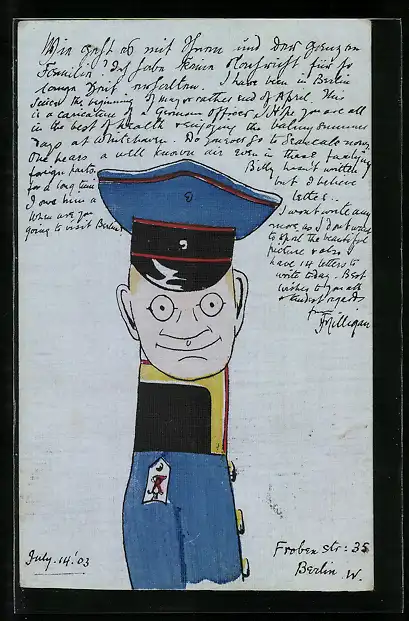 Wie geht es mit Ihnen und der ganzen
Familie? Ich habe keine Nachricht für so
lange Zeit erhalten. I have been in Berlin
since the beginning of May or rather end of April. This
is a caricature of a German officer. I hope you are all
in the best of health & enjoying the balmy summer
days at Whitehaven. Do you ever go to now?
One hears a well known air even in these faraway
foreign parts.
Billy hasn't written
for a long time
but I believe
I owe him a
letter.
When are you
going to visit Berlin?
I won't write any
more as I don't want
to spoil the beautiful
picture & also I
have 14 letters to
write today. Best
wishes to you all
& kindest regards
from
JMilligan
July. 14. '03
Froben str: 35
Berlin W.